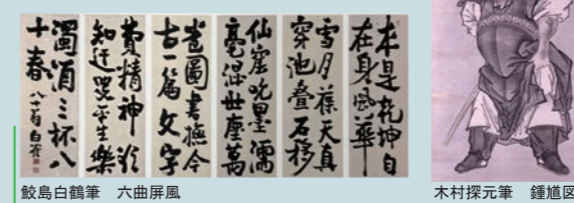 本是乾坤自
在身風華
雪月葆天真
穿池疊石移
仙窟吮墨濡
毫混世塵萬
卷圖書撫今
古一篇文字
費精神欲
知迂叟平生樂
濁酒三杯八
十春 八十翁白鶴
鮫島白鶴筆　六曲屏風
木村探元筆　鍾馗図